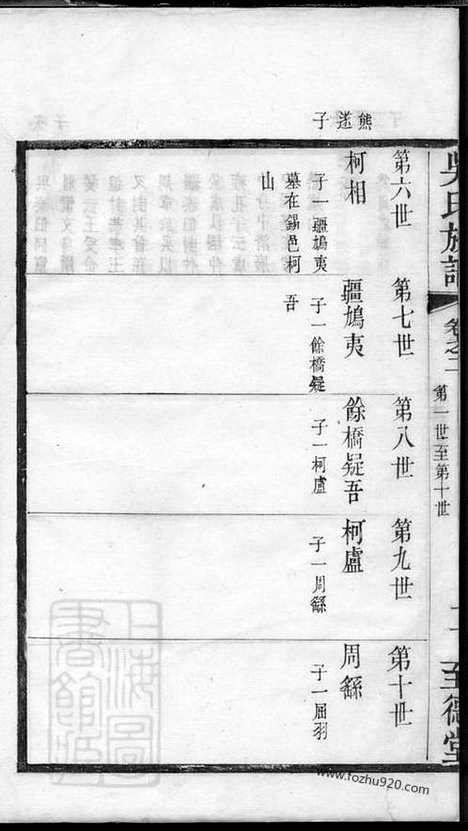 吳氏族譜
卷之二
第一世至第十世
二
至德堂
熊遂子
第六世
柯相
子一疆鳩夷
墓在錫邑柯
山
第七世
疆鳩夷
子一餘橋疑
吾
第八世
餘橋疑吾
子一柯盧
第九世
柯盧
子一周繇
第十世
周繇
子一屈羽
上海圖
書館藏
www.fozhu920.com